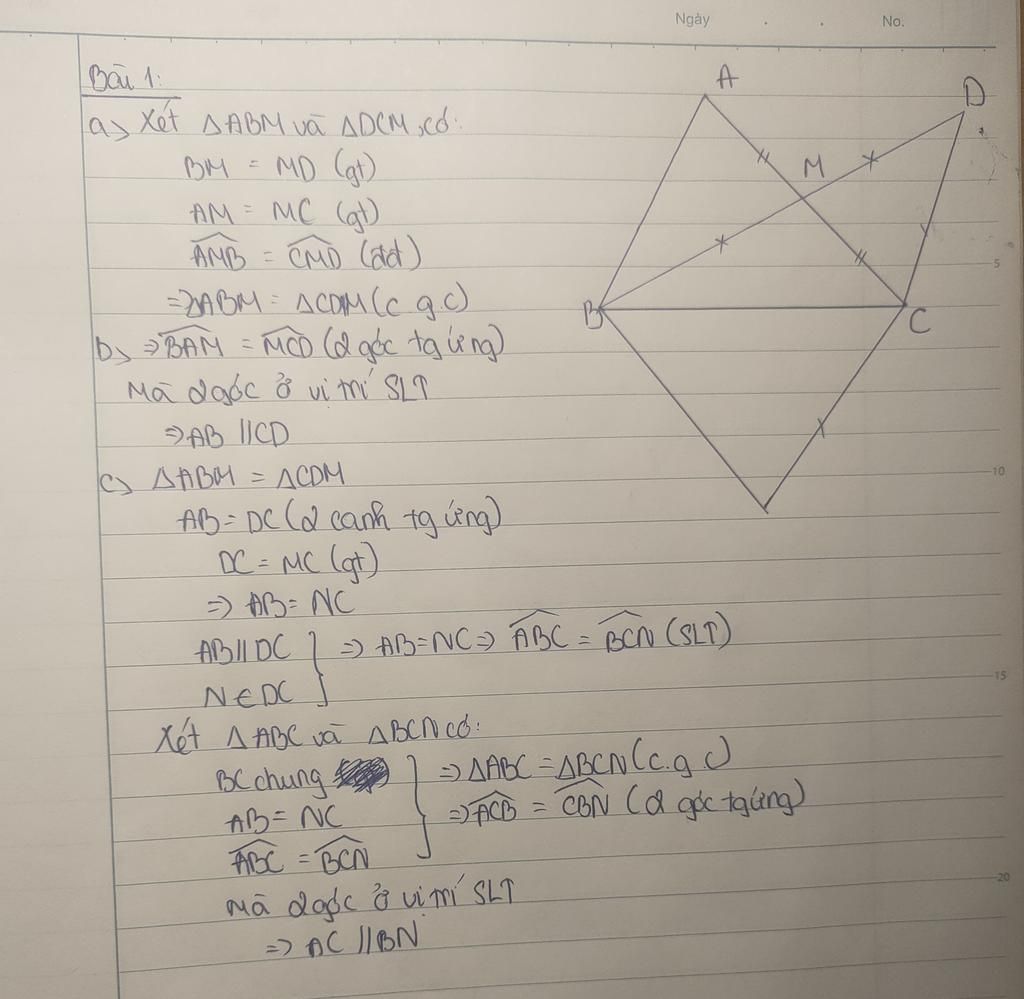 Ngày . . No.
Bài 1:
a> Xét ΔABM và ΔDCM, có:
BM = MD (gt)
AM = MC (gt)
\widehat{AMB} = \widehat{CMD} (đđ)
=> ΔABM = ΔCDM (c g c)
b> => \widehat{BAM} = \widehat{MCD} (2 góc tg ứng)
Mà 2 góc ở vị trí SLT
=> AB // CD
c> ΔABM = ΔCDM
AB = DC (2 cạnh tg ứng)
DC = MC (gt)
=> AB = NC
AB // DC
N ∈ DC } => AB = NC => \widehat{ABC} = \widehat{BCN} (SLT)
Xét ΔABC và ΔBCN có:
BC chung
=> ΔABC = ΔBCN (c.g.c)
AB = NC
=> \widehat{ACB} = \widehat{CBN} (2 góc tg ứng)
\widehat{ABC} = \widehat{BCN}
Mà 2 góc ở vị trí SLT
=> AC // BN
A
D
M
B
C
5
10
15
20